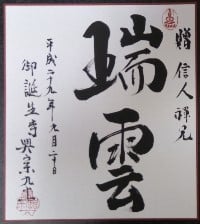 贈 信人禅兄
瑞雲
平成二十九年九月二十日
御誕生寺興宗九十